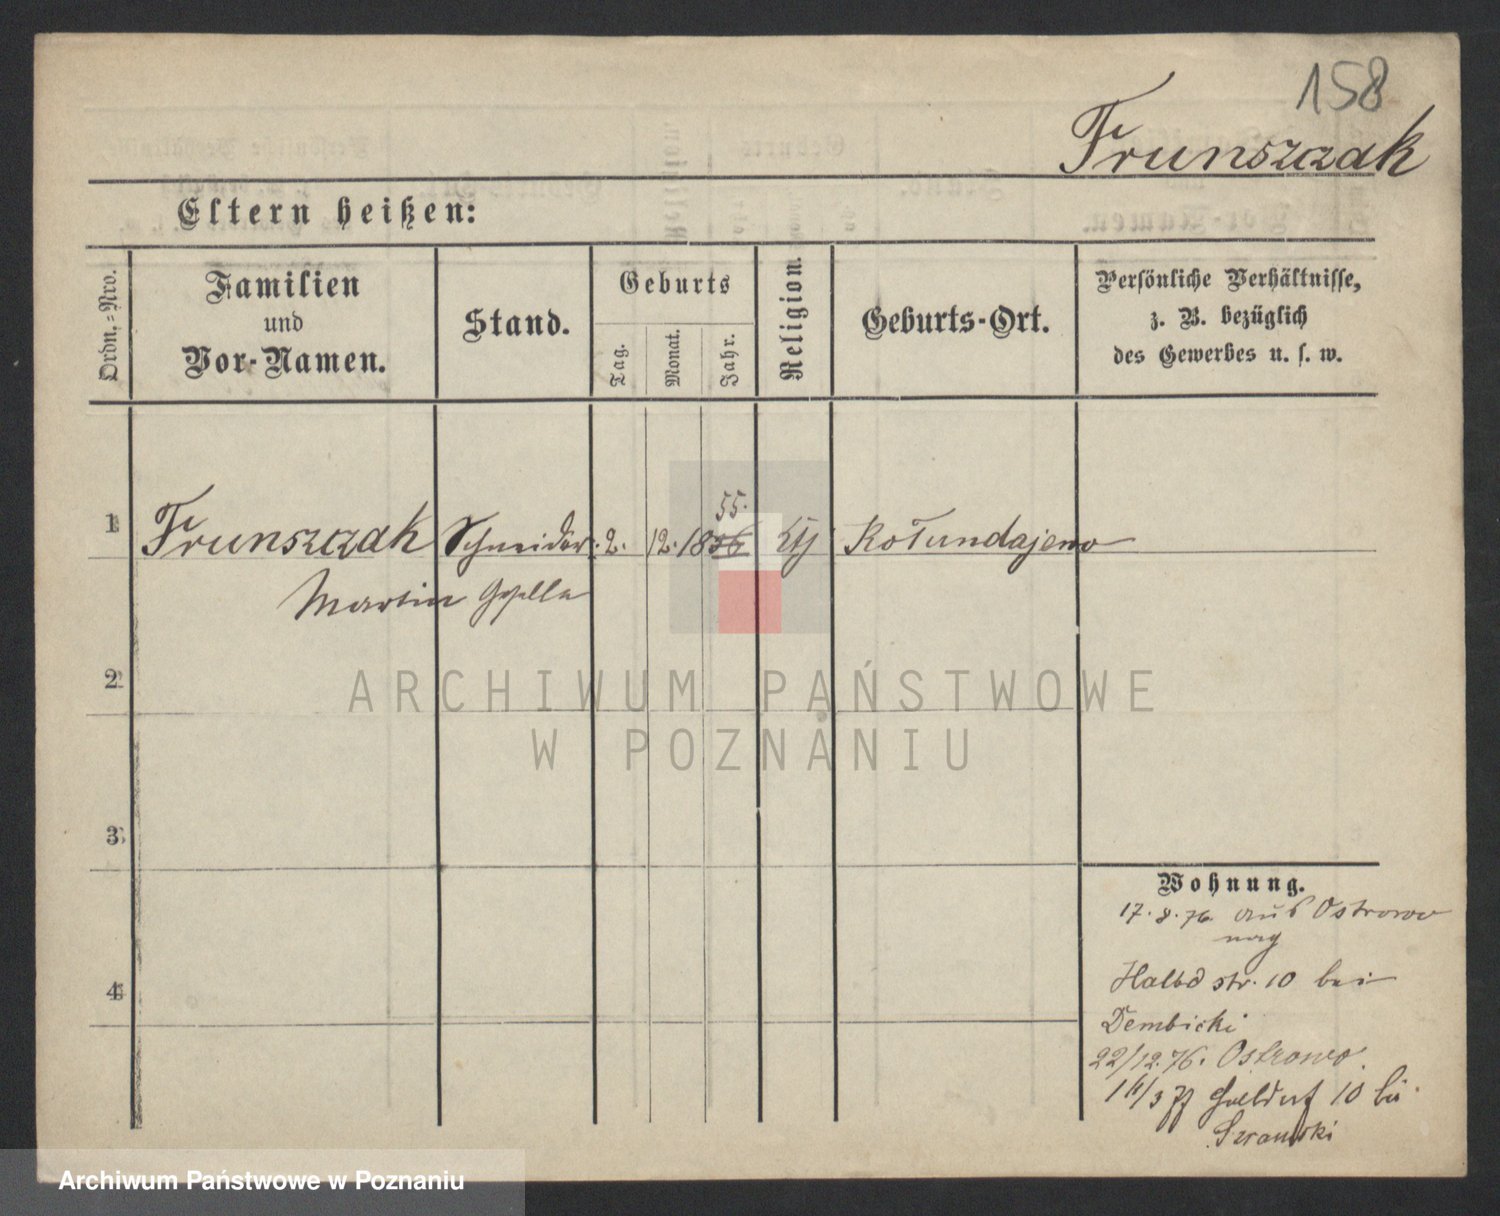 158
Frunszczak
Eltern heißen:
Ordn.-Nro.
Familien
und
Vor-Namen.
Stand.
Geburts
Tag.
Monat.
Jahr.
Religion.
Geburts-Ort.
Persönliche Verhältnisse,
z. B. bezüglich
des Gewerbes u. s. w.
55.
1 Frunszczak Schneider 2. 12. 1856 Kołundajewo
Martin Geselle
2
ARCHIWUM PAŃSTWOWE
W POZNANIU
3
4
Wohnung.
17. 8. 76. aus Ostrowo
Halbd str. 10 bei
Dembicki
22/12. 76. Ostrowo.
10 bei
Archiwum Państwowe w Poznaniu